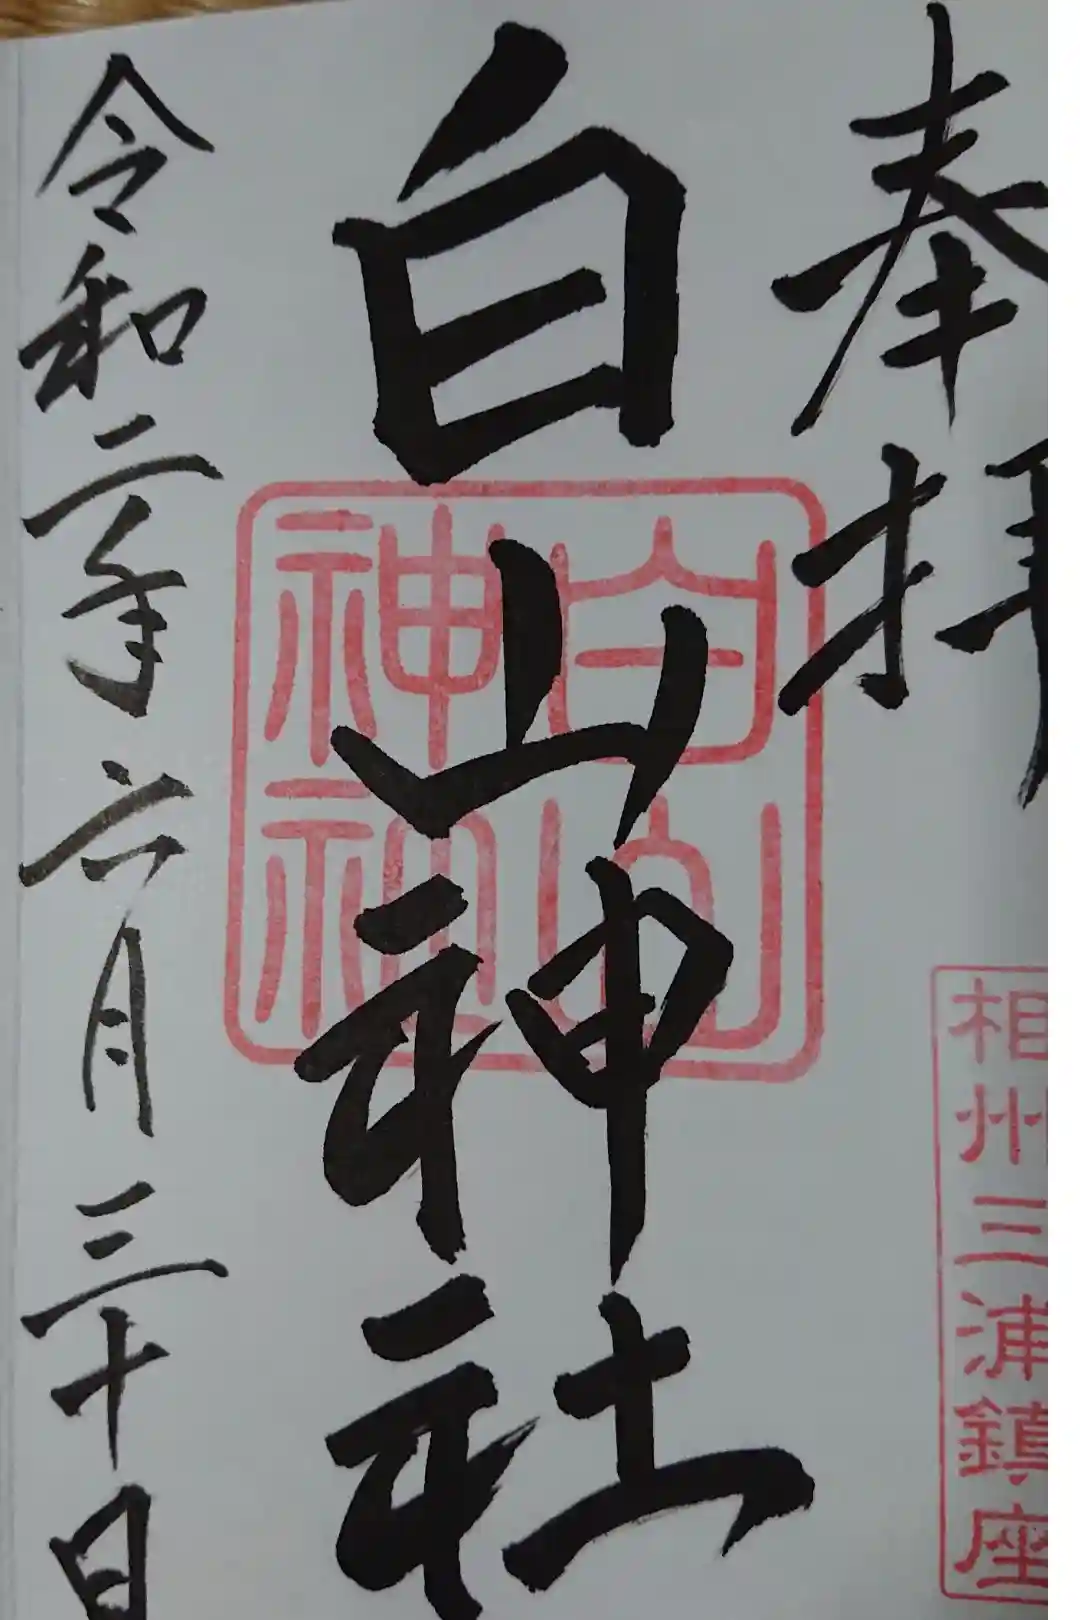 奉拝
相州三浦鎮座
白山神社
白山
神社
令和二年六月三十日